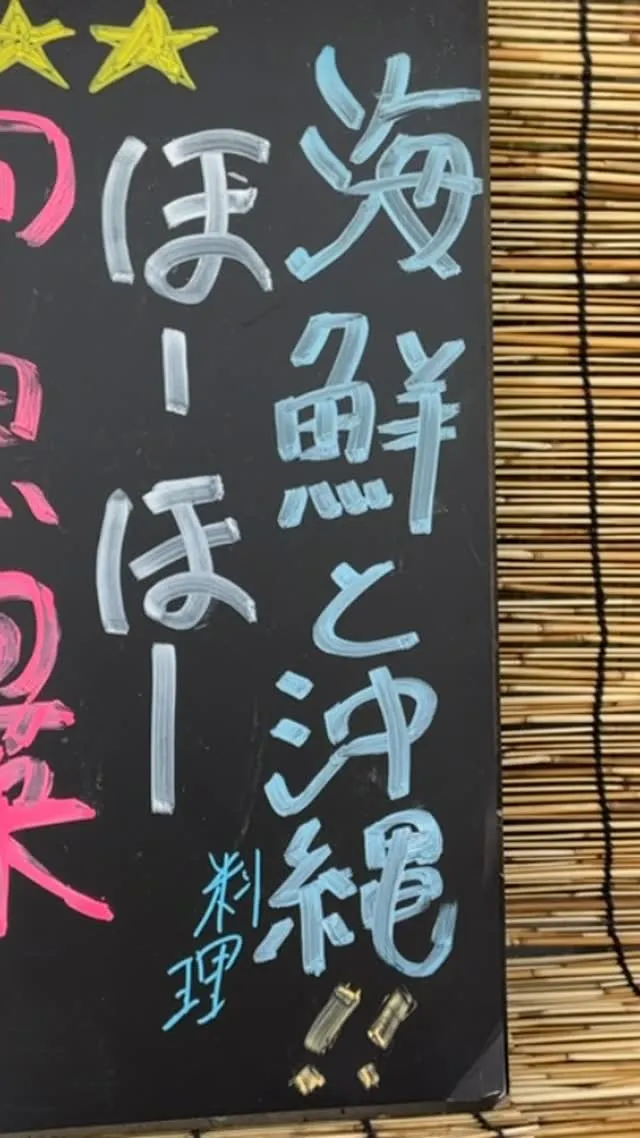 海鮮と沖縄
料理!!
ほーほー